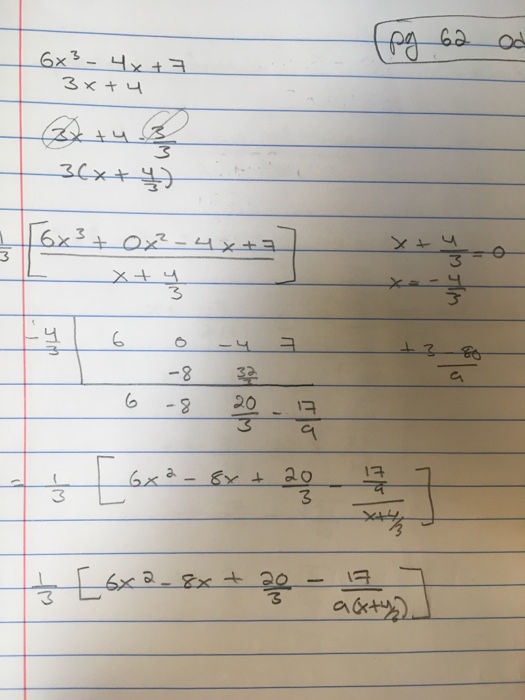 pg 62 od
6x³ - 4x + 7
3x + 4
3x + 4 · 3/3
3(x + 4/3)
1/3 [6x³ + 0x² - 4x + 7 / x + 4/3]
x + 4/3 = 0
x = -4/3
-4/3 | 6 0 -4 7
-8 32/3
+ 3 - 80/9
6 -8 20/3 - 17/9
= 1/3 [6x² - 8x + 20/3 - 17/9 / x+4/3]
1/3 [6x² - 8x + 20/3 - 17 / 9(x+4/3)]